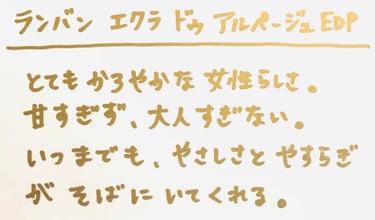 ランバン エクラ ドゥ アルページュ EDP
とても かろやかな 女性らしさ。
甘すぎず、大人すぎない。
いつまでも、やさしさと やすらぎ
が そばに いてくれる。